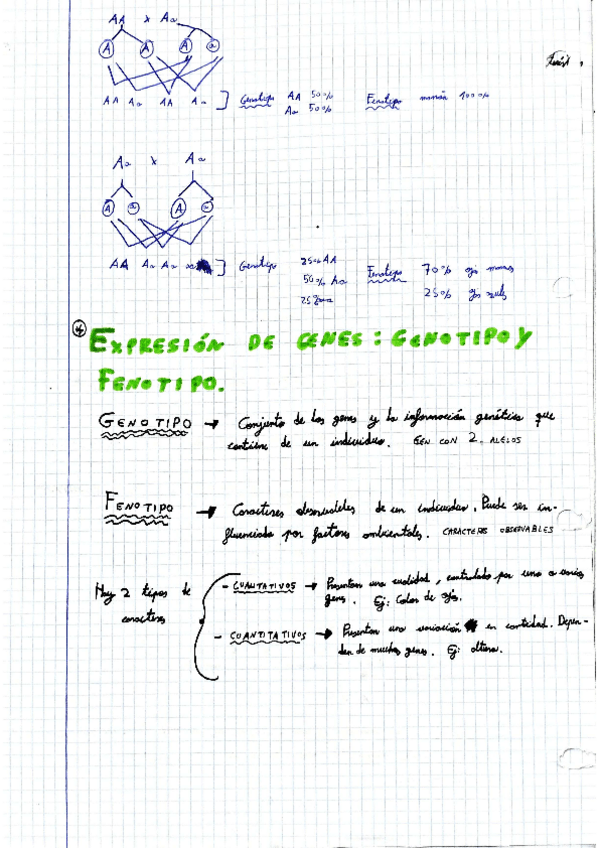 AA x Aa
A A A a
AA Aa AA Aa ] Genotipo AA 50% Fenotipo marrón 100%
Aa 50%
Aa x Aa
A a A a
AA Aa Aa aa ] Genotipo 25% AA Fenotipo 70% ojos marrones
50% Aa 25% ojos azules
25% aa
EXPRESIÓN DE GENES: GENOTIPO Y
FENOTIPO.
GENOTIPO → Conjunto de los genes y la información genética que
contiene de un individuo. GEN CON 2 ALELOS
FENOTIPO → Caracteres observables de un individuo. Puede ser in-
fluenciado por factores ambientales. CARACTERES OBSERVABLES
Hay 2 tipos de
caracteres
- CUALITATIVOS → Presentan una cualidad, controlado por uno o varios
genes. Ej: Color de ojos.
- CUANTITATIVOS → Presentan una variación en cantidad. Depen-
den de muchos genes. Ej: altura.